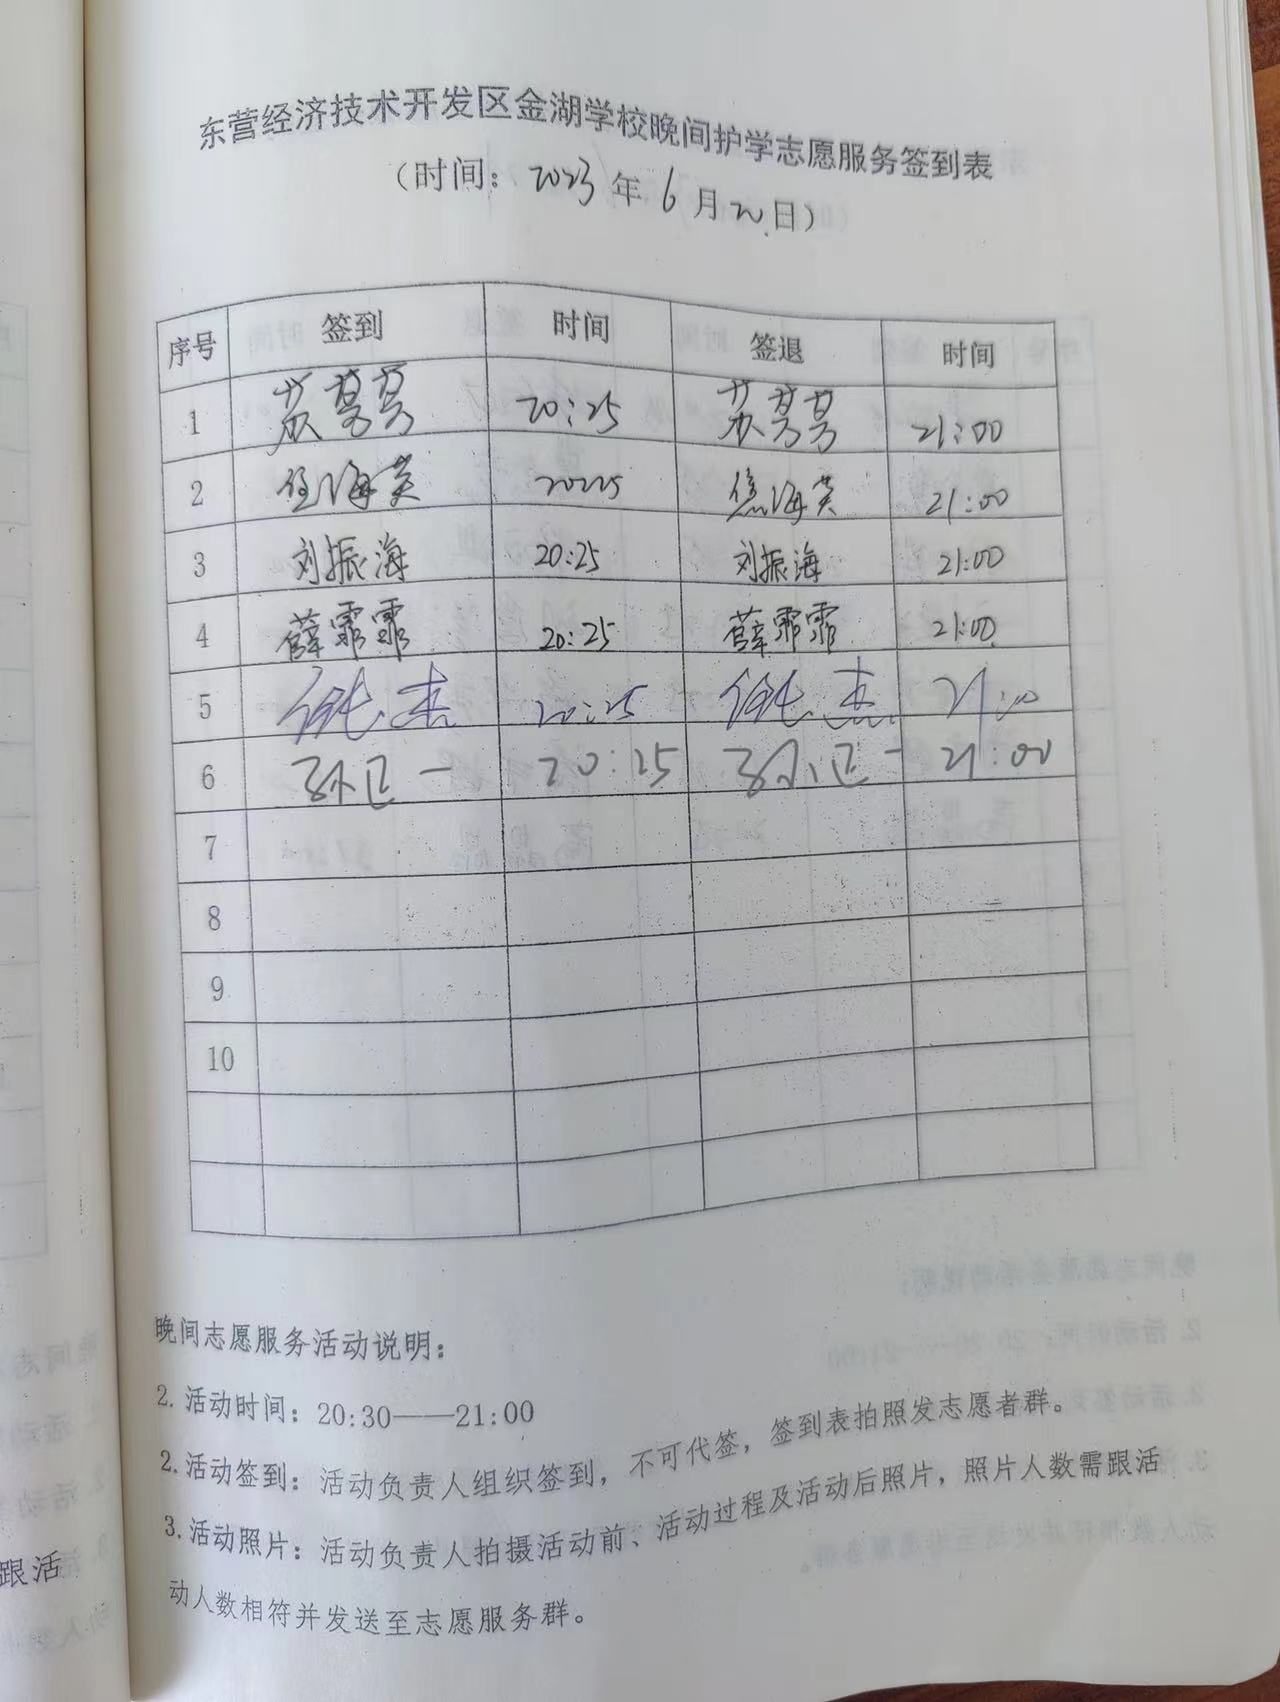 东营经济技术开发区金湖学校晚间护学志愿服务签到表
（时间：2023年6月20日）
序号 签到 时间 签退 时间
1 苏芳芳 20:25 苏芳芳 21:00
2 焦海英 20:25 焦海英 21:00
3 刘振海 20:25 刘振海 21:00
4 薛霏霏 20:25 薛霏霏 21:00
5 20:25 21:00
6 孙卫一 20:25 孙卫一 21:00
7
8
9
10
晚间志愿服务活动说明：
2.活动时间：20:30——21:00
2.活动签到：活动负责人组织签到，不可代签，签到表拍照发志愿者群。
3.活动照片：活动负责人拍摄活动前、活动过程及活动后照片，照片人数需跟活
动人数相符并发送至志愿服务群。
跟活